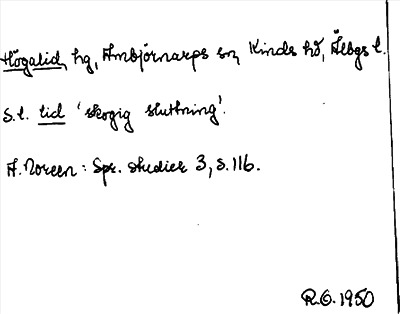 Högalid, hg, Ambjörnarps sn, Kinds hd, Älvbgs l.
S.l. lid 'skogig sluttning'.
A. Noreen: Spr. studier 3, s. 116.
R.O. 1950